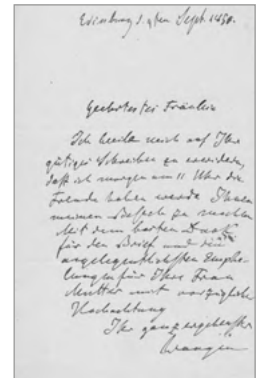 Geehrtestes Fräulein
Ich beeile mich auf Ihr
gütiges Schreiben zu erwidern,
daß ich morgen um 11 Uhr die
Freude haben werde Ihnen
meinen Besuch zu machen
Mit dem besten Dank
für den Brief und den
angelegentlichsten Empfeh-
lungen für Ihre Frau
Mutter mit vorzüglicher
Hochachtung
Ihr ganz ergebenster